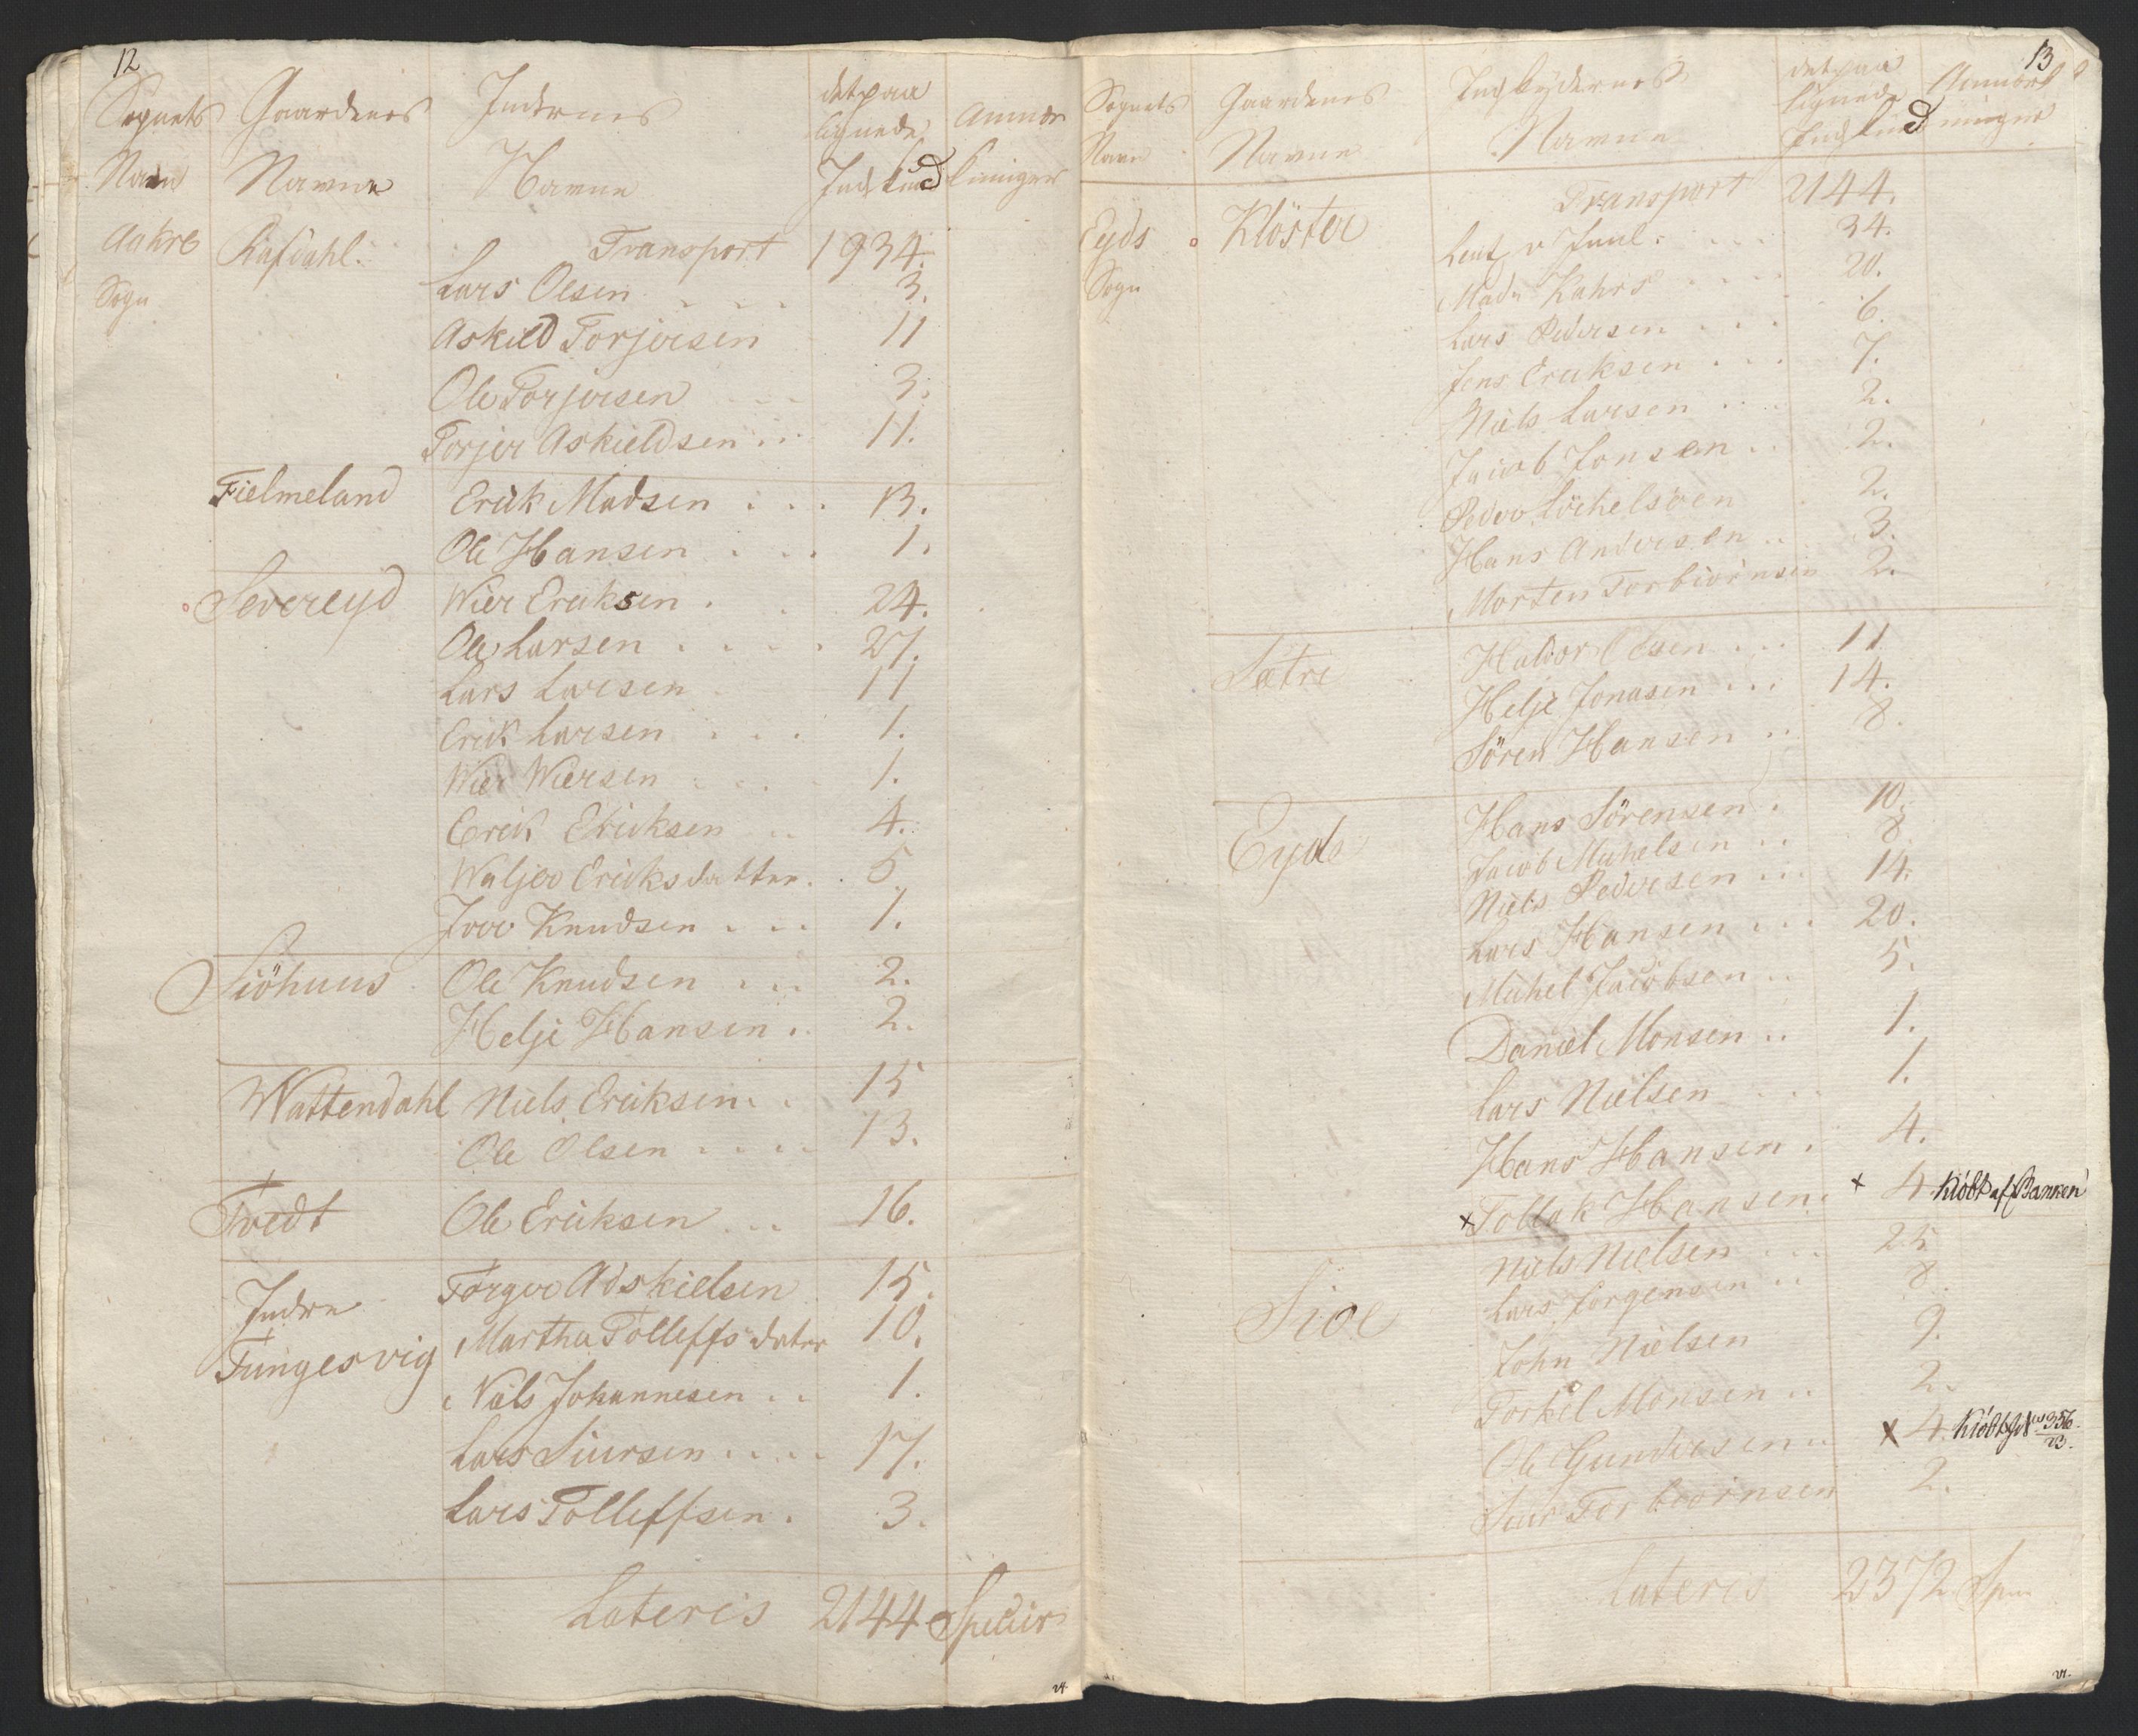 12
Sognets Gaardenes Indernes det paa Anmær
Navn Navne Navne lignede Indskud kninger
Aakre Rafdahl Transport 1934.
Sogn Lars Olsen 3.
Askild Torjersen 11
Ole Torjersen 3.
Torjer Askieldsen 11.
Fielmeland Erik Madsen 13.
Ole Hansen 1.
Severeyd Wier Eriksen 24.
Ole Larsen 27.
Lars Larsen 11
Erik Larsen 1.
Wier Wiersen 1.
Erik Eriksen 4.
Waljer Eriksdatter 5
Iver Knudsen 1.
Siöhuus Ole Knudsen 2.
Helje Hansen 2.
Wattendahl Niels Eriksen 15
Ole Olsen 13.
Tvedt Ole Eriksen 16.
Indre Torger Adskielsen 15.
Tungesvig Martha Tolleffsdater 10.
Niels Johannesen 1.
Lars Siursen 17.
Lars Tolleffsen 3.
Lateris 2144 Specier
13
Sognets Gaardenes Indbydernes det paa Anmærk
Navn Navne Navne lignede Indskud ninger
Eyds Klöster Transport 2144.
Sogn Leut v Juul 34.
Madm Kahrs 20.
Lars Pedersen 6.
Jens Eriksen 7.
Niels Larsen 2.
Jacob Jonsen 2.
Peder 2.
Hans Andersen 3.
Morten Torbiörnsen 2.
Sætre Haldor Olsen 11
Helje Jonasen 14.
Sören Hansen 8.
Eyds Hans Sörensen 10.
Jacob Michelsen 8
Niels Pedersen 14.
Lars Hansen 20.
Michel Jacobsen 5.
Daniel Monsen 1.
Lars Nielsen 1.
Hans Hansen 4.
x Tollak Hansen x 4 Kiöbt af Banken
Sioe Niels Nielsen 25
Lars Jorgensen 8.
John Nielsen 9.
Torkel Monsen 2.
Ole Gundersen x 4. Kiöbt 356. 23.
Siur Torbiörnsen 2.
Lateris 2372 Spec